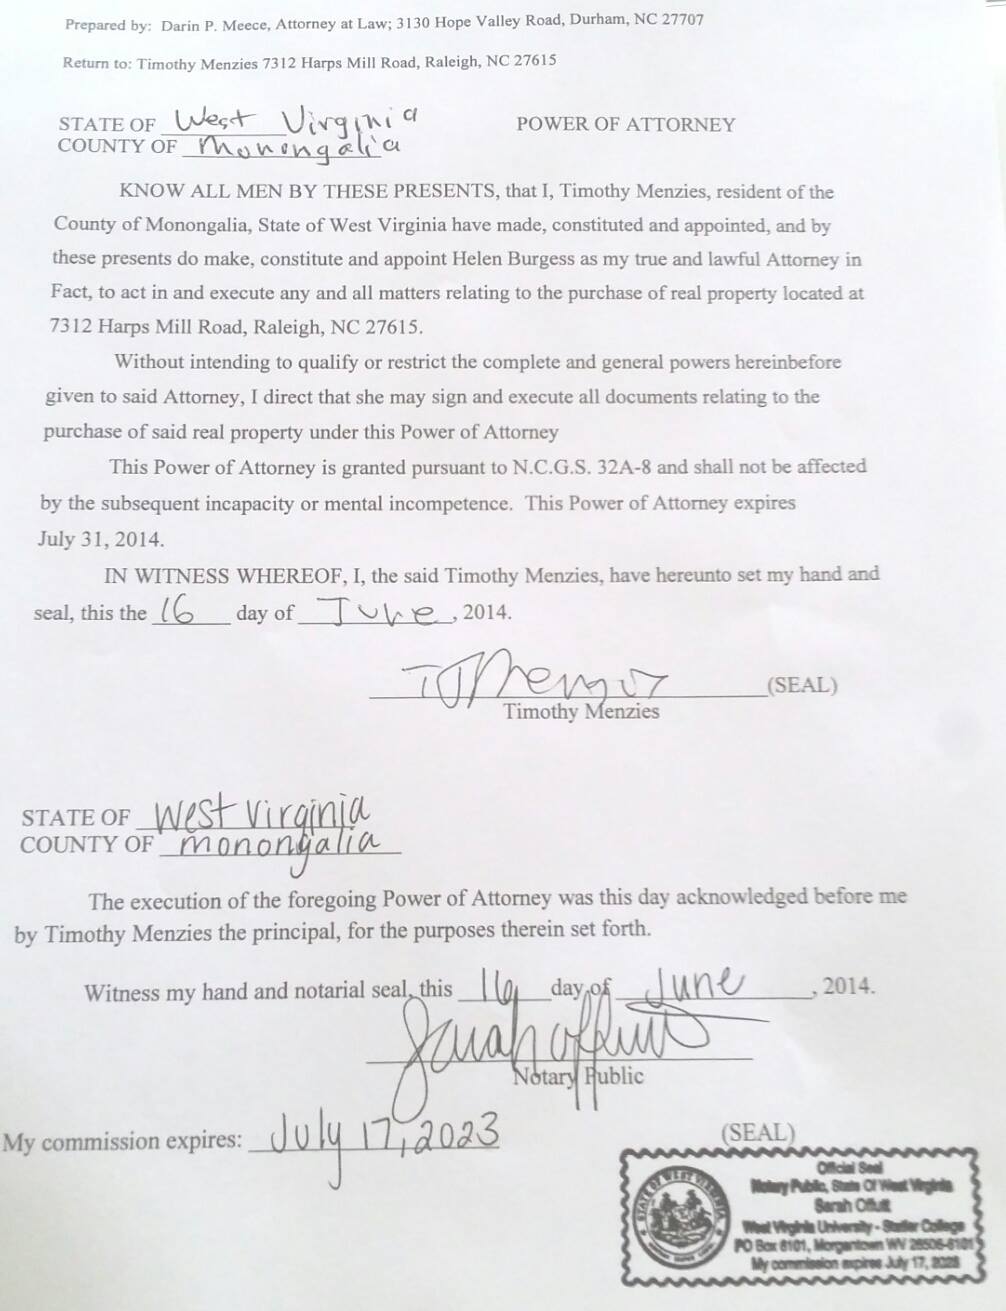 Prepared by: Darin P. Meece, Attorney at Law; 3130 Hope Valley Road, Durham, NC 27707
Return to: Timothy Menzies 7312 Harps Mill Road, Raleigh, NC 27615
STATE OF West Virginia POWER OF ATTORNEY
COUNTY OF Monongalia
KNOW ALL MEN BY THESE PRESENTS, that I, Timothy Menzies, resident of the
County of Monongalia, State of West Virginia have made, constituted and appointed, and by
these presents do make, constitute and appoint Helen Burgess as my true and lawful Attorney in
Fact, to act in and execute any and all matters relating to the purchase of real property located at
7312 Harps Mill Road, Raleigh, NC 27615.
Without intending to qualify or restrict the complete and general powers hereinbefore
given to said Attorney, I direct that she may sign and execute all documents relating to the
purchase of said real property under this Power of Attorney
This Power of Attorney is granted pursuant to N.C.G.S. 32A-8 and shall not be affected
by the subsequent incapacity or mental incompetence. This Power of Attorney expires
July 31, 2014.
IN WITNESS WHEREOF, I, the said Timothy Menzies, have hereunto set my hand and
seal, this the 16 day of June, 2014.
(SEAL)
Timothy Menzies
STATE OF West Virginia
COUNTY OF monongalia
The execution of the foregoing Power of Attorney was this day acknowledged before me
by Timothy Menzies the principal, for the purposes therein set forth.
Witness my hand and notarial seal, this 16 day of June, 2014.
Sarah Offutt
Notary Public
My commission expires: July 17, 2023
(SEAL)
Official Seal
Notary Public, State Of West Virginia
Sarah Offutt
West Virginia University - Statler College
PO Box 6101, Morgantown WV 26506-6101
My commission expires July 17, 2023
STATE OF WEST VIRGINIA